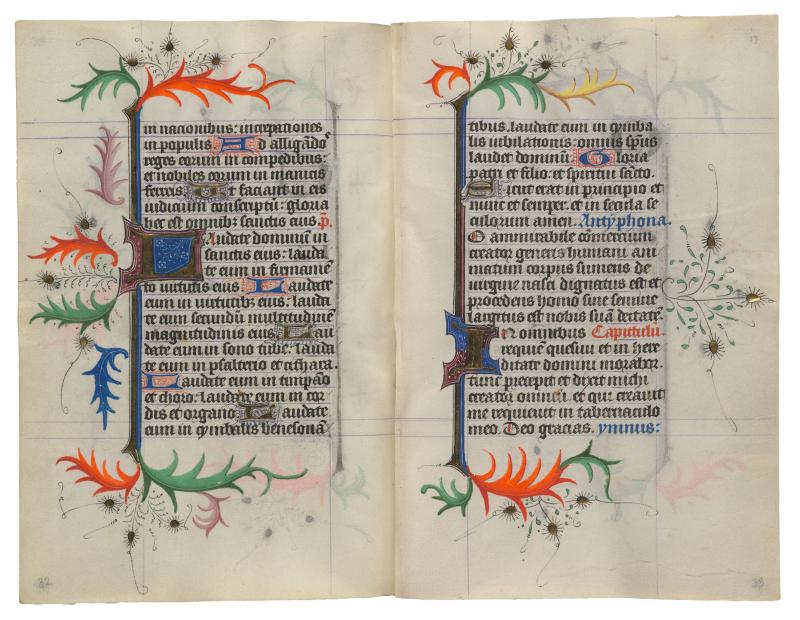 in nacionibus: increpationes
in populis. Ad alligādo˜
reges eorum in compedibus:
et nobiles eorum in manicis
ferreis. Ut faciant in eis
iudicium conscriptū: gloria
hec est omnibꝫ sanctis eius. p̄.
Laudate dominum in
sanctis eius: lauda
te eum in firmamē
to virtutis eius. Laudate
eum in virtutibꝫ eius: lauda
te eum secundū multitudinē
magnitudinis eius. Lau
date eum in sono tube: lauda
te eum in psalterio et cithara.
Laudate eum in timpāo
et choro: laudate eum in cor
dis et organo. Laudate
eum in cymbalis benesonā
32
tibus. laudate eum in cymba
lis iubilationis: omnis sp̄us
laudet dominū. Gloria
patri et filio. et spiritui sācto.
Sicut erat in principio et
nunc et semper. et in secula se
culorum amen. Antyphona.
O ammirabile comercium
creator generis humani ani
matum corpus sumens de
virgine nasci dignatus est et
procedens homo sine semine
largitus est nobis suā deitatē.
In omnibus Capitulū.
requiem quesiui et in here
ditate domini morabor.
tunc precepit et dixit michi
creator omniū. et qui creauit
me requieuit in tabernaculo
meo. Deo gracias. ymnus:
33